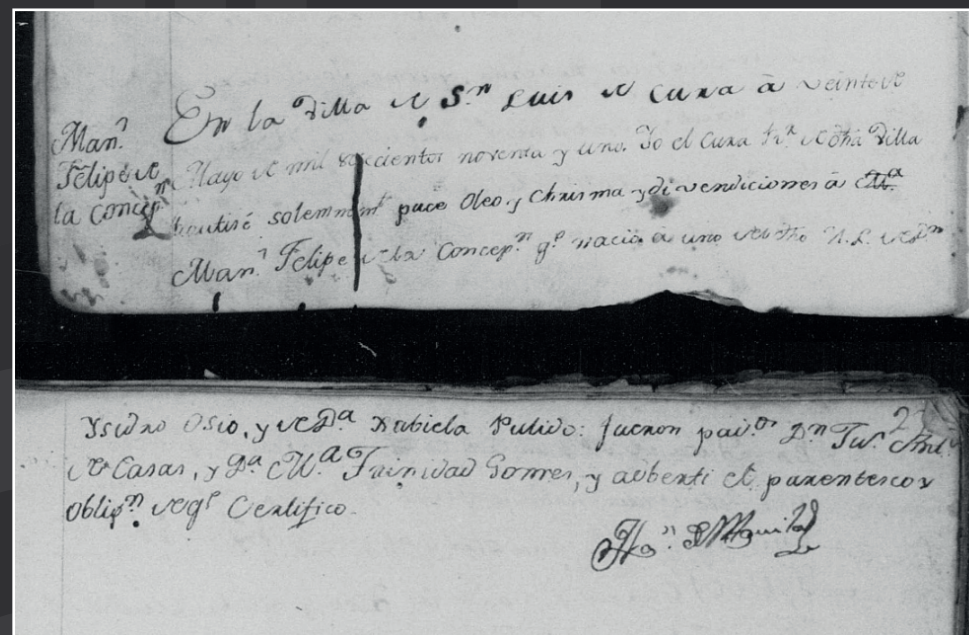 Man.l
Felipe de
la Concep.n
En la Villa de S.n Luis de Cura à veinte de
Mayo de mil setecientos noventa y uno. Yo el Cura Tt.r de dha Villa
bautisé solemnem.te puce Oleo, y Chrisma y di vendiciones à
Man.l Felipe de la Concep.n q.e nació à uno de dho H. L. de D.n
2
Ysidro Osio, y de D.a Rabiela Pulido: fueron pad.os D.n Ju.n
de Casas, y D.a M.a Trinidad Gomes, y adberti el parentesco y
oblig.n de q.e Certifico